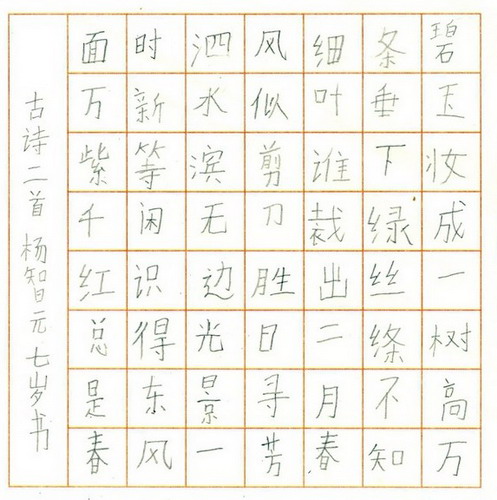 碧玉妆成一树高万
条垂下绿丝绦不知
细叶谁裁出二月春
风似剪刀胜日寻芳
泗水滨无边光景一
时新等闲识得东风
面万紫千红总是春
古诗二首 杨智元 七岁书